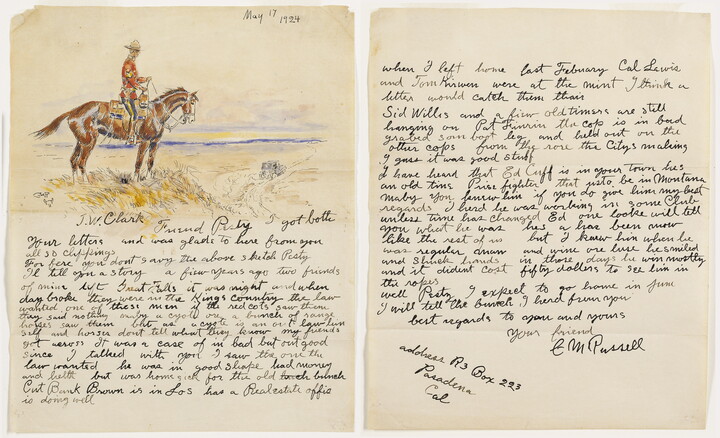 May 17 1924
CMR
T. W. Clark
Friend Pesty I got both
Your letters and was glad to here from you
also Clippings
For fere you dont savy the above sketch Pesty
Il tell you a story a few years ago two friends
of mine left Great Falls it was night and when
day broke they were in the Kings country the law
wanted one of these men if the red cots saw them
they said nothing maby a cyote ore a bunch of range
horses saw them but as a cyote is an out law him
self and horses dont tell what they know my friends
got across It was a case of in bad but out good
since I talked with you I saw the one the
law wanted he was in good shape had money
and helth but was home sick for the old bunch
Cut Bank Brown is in Los has a Realestate offis
is doing well
when I left home last Febuary Cal Lewis
and Tom Kirwen were at the mint I think a
letter would catch them thair
Sid Willis and a fiew old timers are still
hanging on Pat the cop is in bad
grabed som boot leg and held out on the
other cops from the rore the Citys making
I guess it was good stuff
I have heard that Ed Cuff is in your town hes
an old time Prise fighter that usto be in Montana
maby you knew him if you do give him my best
regards I herd he was working in some Club
unless time has changed Ed one looke will tell
you what he was hes a has been now
like the rest of us but I knew him when he
was regular and wine ore luse he smiled
and shuck hands in those days he win mostly
and it dident cost fifty dollars to see him in
the ropes
well Pesty I expect to go home in june
I will tell the bunch I herd from you
best regards to you and yours
Your friend
C M Russell
address R3 Box 223
Pasadena
Cal